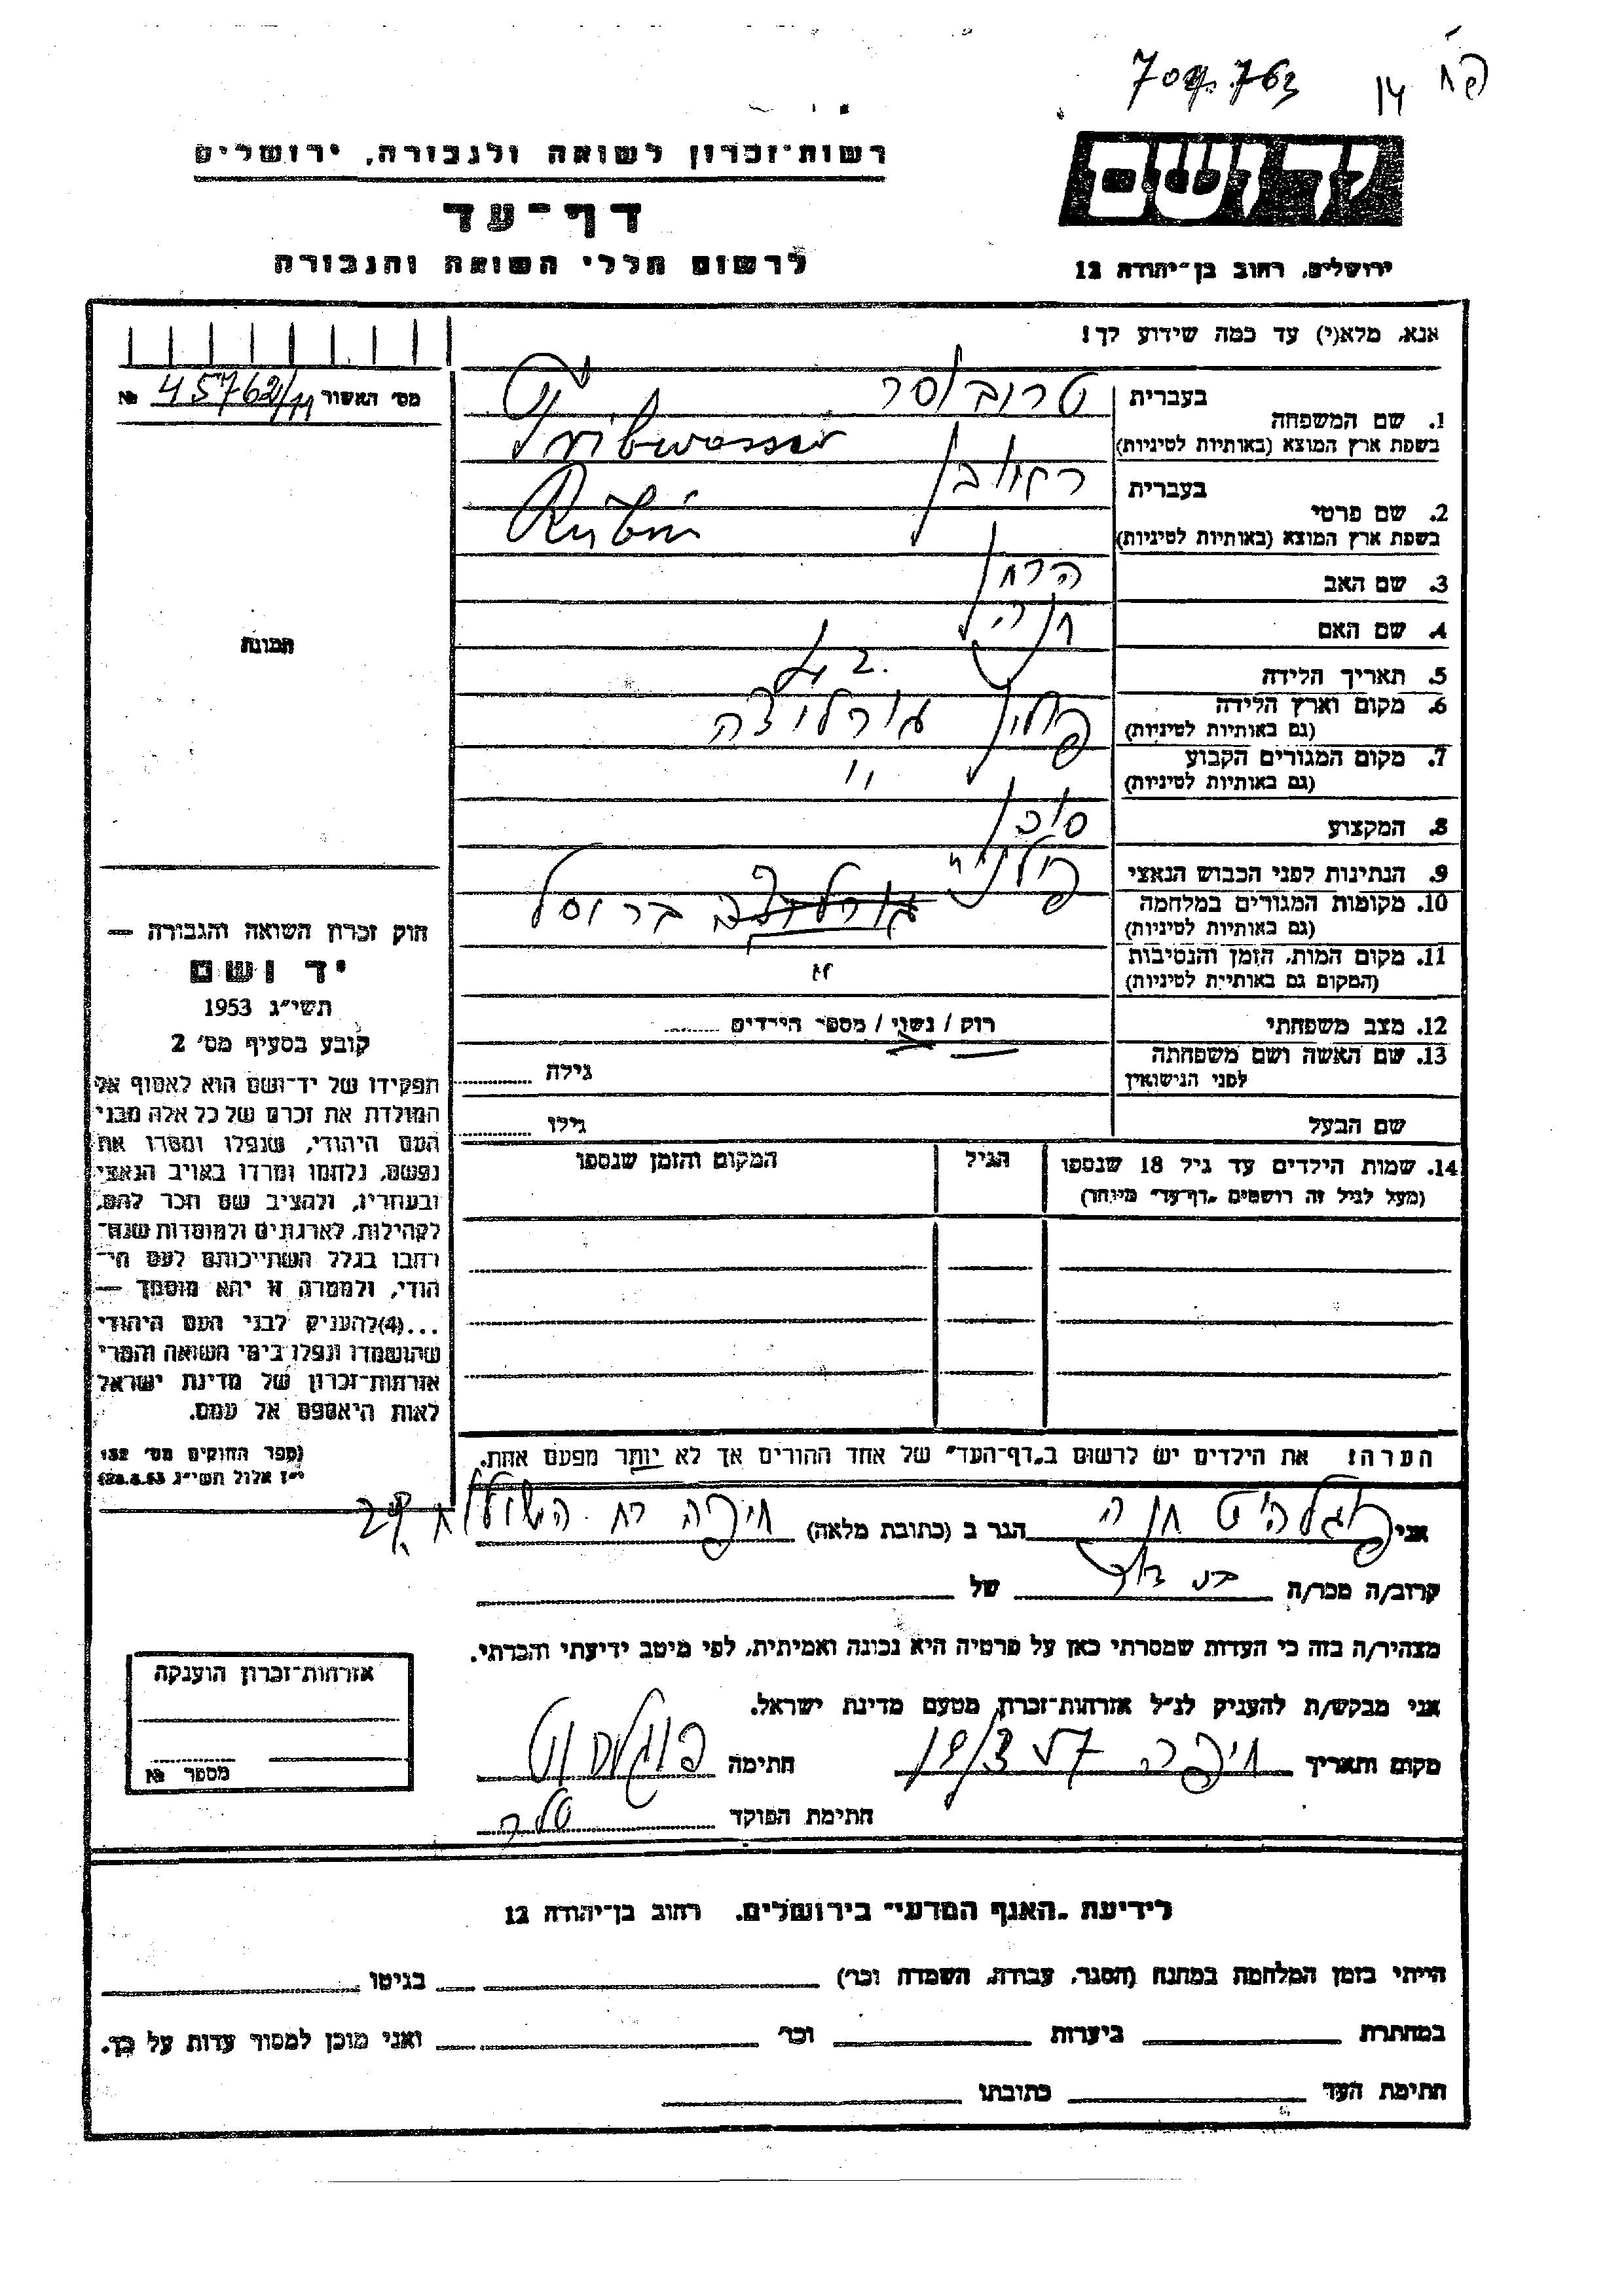 פח
14
רשות־זכרון לשואה ולגבורה, ירושלים
יד ושם
דף־עד
לרשום חללי השואה והגבורה
ירושלים, רחוב בן־יהודה 12
אנא, מלא(י) עד כמה שידוע לך!
מס׳ האשור № 45762/11
1. שם המשפחה
בעברית טרובוסר
בשפת ארץ המוצא (באותיות לטיניות) Tribwasser
2. שם פרטי
בעברית ראובן
בשפת ארץ המוצא (באותיות לטיניות) Rubin
3. שם האב
4. שם האם חנה
תמונה
5. תאריך הלידה 42
6. מקום וארץ הלידה פולין גורליצה
(גם באותיות לטיניות)
7. מקום המגורים הקבוע "
(גם באותיות לטיניות)
8. המקצוע סוכן
9. הנתינות לפני הכבוש הנאצי
10. מקומות המגורים במלחמה גורליצה בריסל
(גם באותיות לטיניות)
11. מקום המות, הזמן והנסיבות
(המקום גם באותיות לטיניות)
12. מצב משפחתי רוק / נשוי / מספר הילדים
13. שם האשה ושם משפחתה גילה
לפני הנישואין
שם הבעל גילו
14. שמות הילדים עד גיל 18 שנספו הגיל המקום והזמן שנספו
(מעל לגיל זה רושמים „דף־עד" מיוחד)
הערה: את הילדים יש לרשום ב„דף־העד" של אחד ההורים אך לא יותר מפעם אחת.
חוק זכרון השואה והגבורה —
יד ושם
תשי״ג 1953
קובע בסעיף מס׳ 2
תפקידו של יד־ושם הוא לאסוף אל
המולדת את זכרם של כל אלה מבני
העם היהודי, שנפלו ומסרו את
נפשם, נלחמו ומרדו באויב הנאצי
ובעוזריו, ולהציב שם וזכר להם,
לקהילות, לארגונים ולמוסדות שנח־
רבו בגלל השתייכותם לעם הי־
הודי, ולמטרה זו יהא מוסמך —
...(4)להעניק לבני העם היהודי
שהושמדו ונפלו בימי השואה והמרי
אזרחות־זכרון של מדינת ישראל
לאות היאספם אל עמם.
(ספר החוקים מס׳ 132
י״ז אלול תשי״ג 28.8.53)
אני חנה הגר ב (כתובת מלאה) חיפה רח
קרוב/ה מכר/ה בת דוד של
מצהיר/ה בזה כי העדות שמסרתי כאן על פרטיה היא נכונה ואמיתית, לפי מיטב ידיעתי והכרתי.
אני מבקש/ת להעניק לנ״ל אזרחות־זכרון מטעם מדינת ישראל.
מקום ותאריך חיפה חתימה
חתימת הפוקד
אזרחות־זכרון הוענקה
מספר №
לידיעת „האגף המדעי" בירושלים, רחוב בן־יהודה 12
הייתי בזמן המלחמה במחנה (הסגר, עבודה, השמדה וכו׳) בגיטו
במחתרת ביערות וכו׳ ואני מוכן למסור עדות על כך.
חתימת העד כתובתו